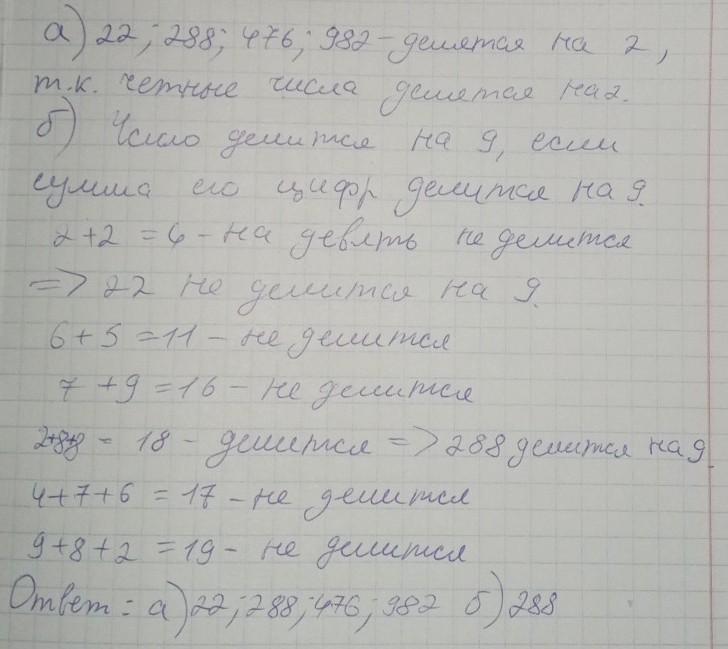 а) 22; 288; 476; 982 - делятся на 2,
т.к. четные числа делятся на 2.
б) Число делится на 9, если
сумма его цифр делится на 9.
2+2 = 4 - на девять не делится
=> 22 не делится на 9.
6+5 = 11 - не делится
7+9 = 16 - не делится
2+8+8 = 18 - делится => 288 делится на 9
4+7+6 = 17 - не делится
9+8+2 = 19 - не делится
Ответ: а) 22; 288; 476; 982 б) 288